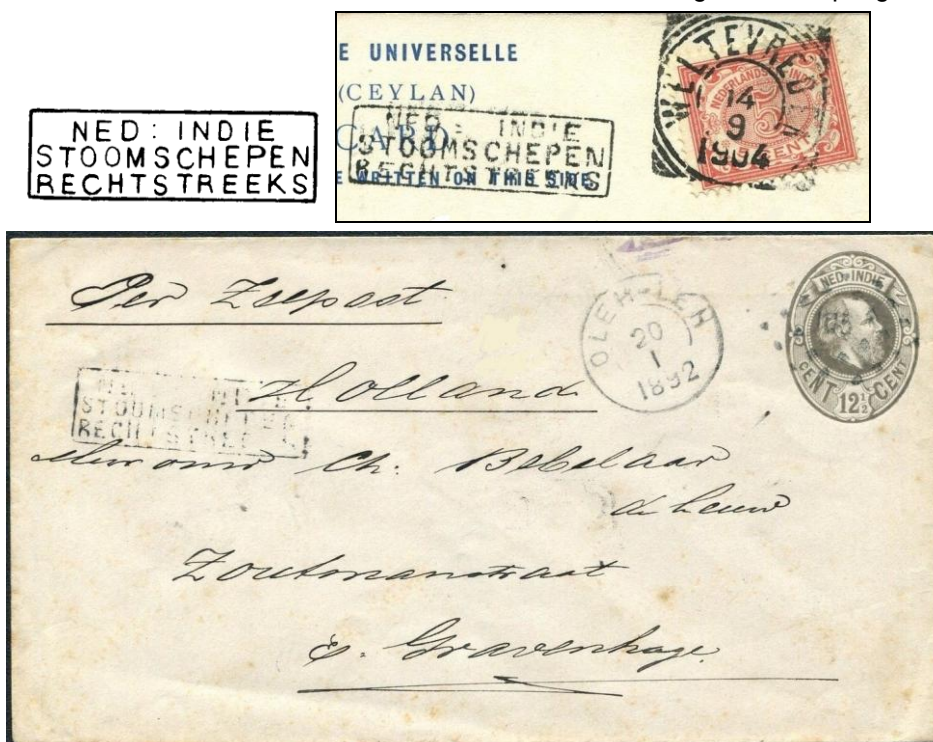 NED: INDIE
STOOMSCHEPEN
RECHTSTREEKS
E UNIVERSELLE
(CEYLAN)
CARD
E WRITTEN ON THIS SIDE
NED: INDIE
STOOMSCHEPEN
RECHTSTREEKS
WELTEVREDEN
14
9
1904
NEDERLANDSCH INDIE
5
CENT
Per Zeepost
Holland
OLEH-LEH
20
1
1892
NED. INDIE
CENT 12½ CENT
STOOMSCHEPEN
RECHTSTREEKS
Mevrouw Ch. Bebelaar
de Leeuw
Zoutmanstraat
s. Gravenhage